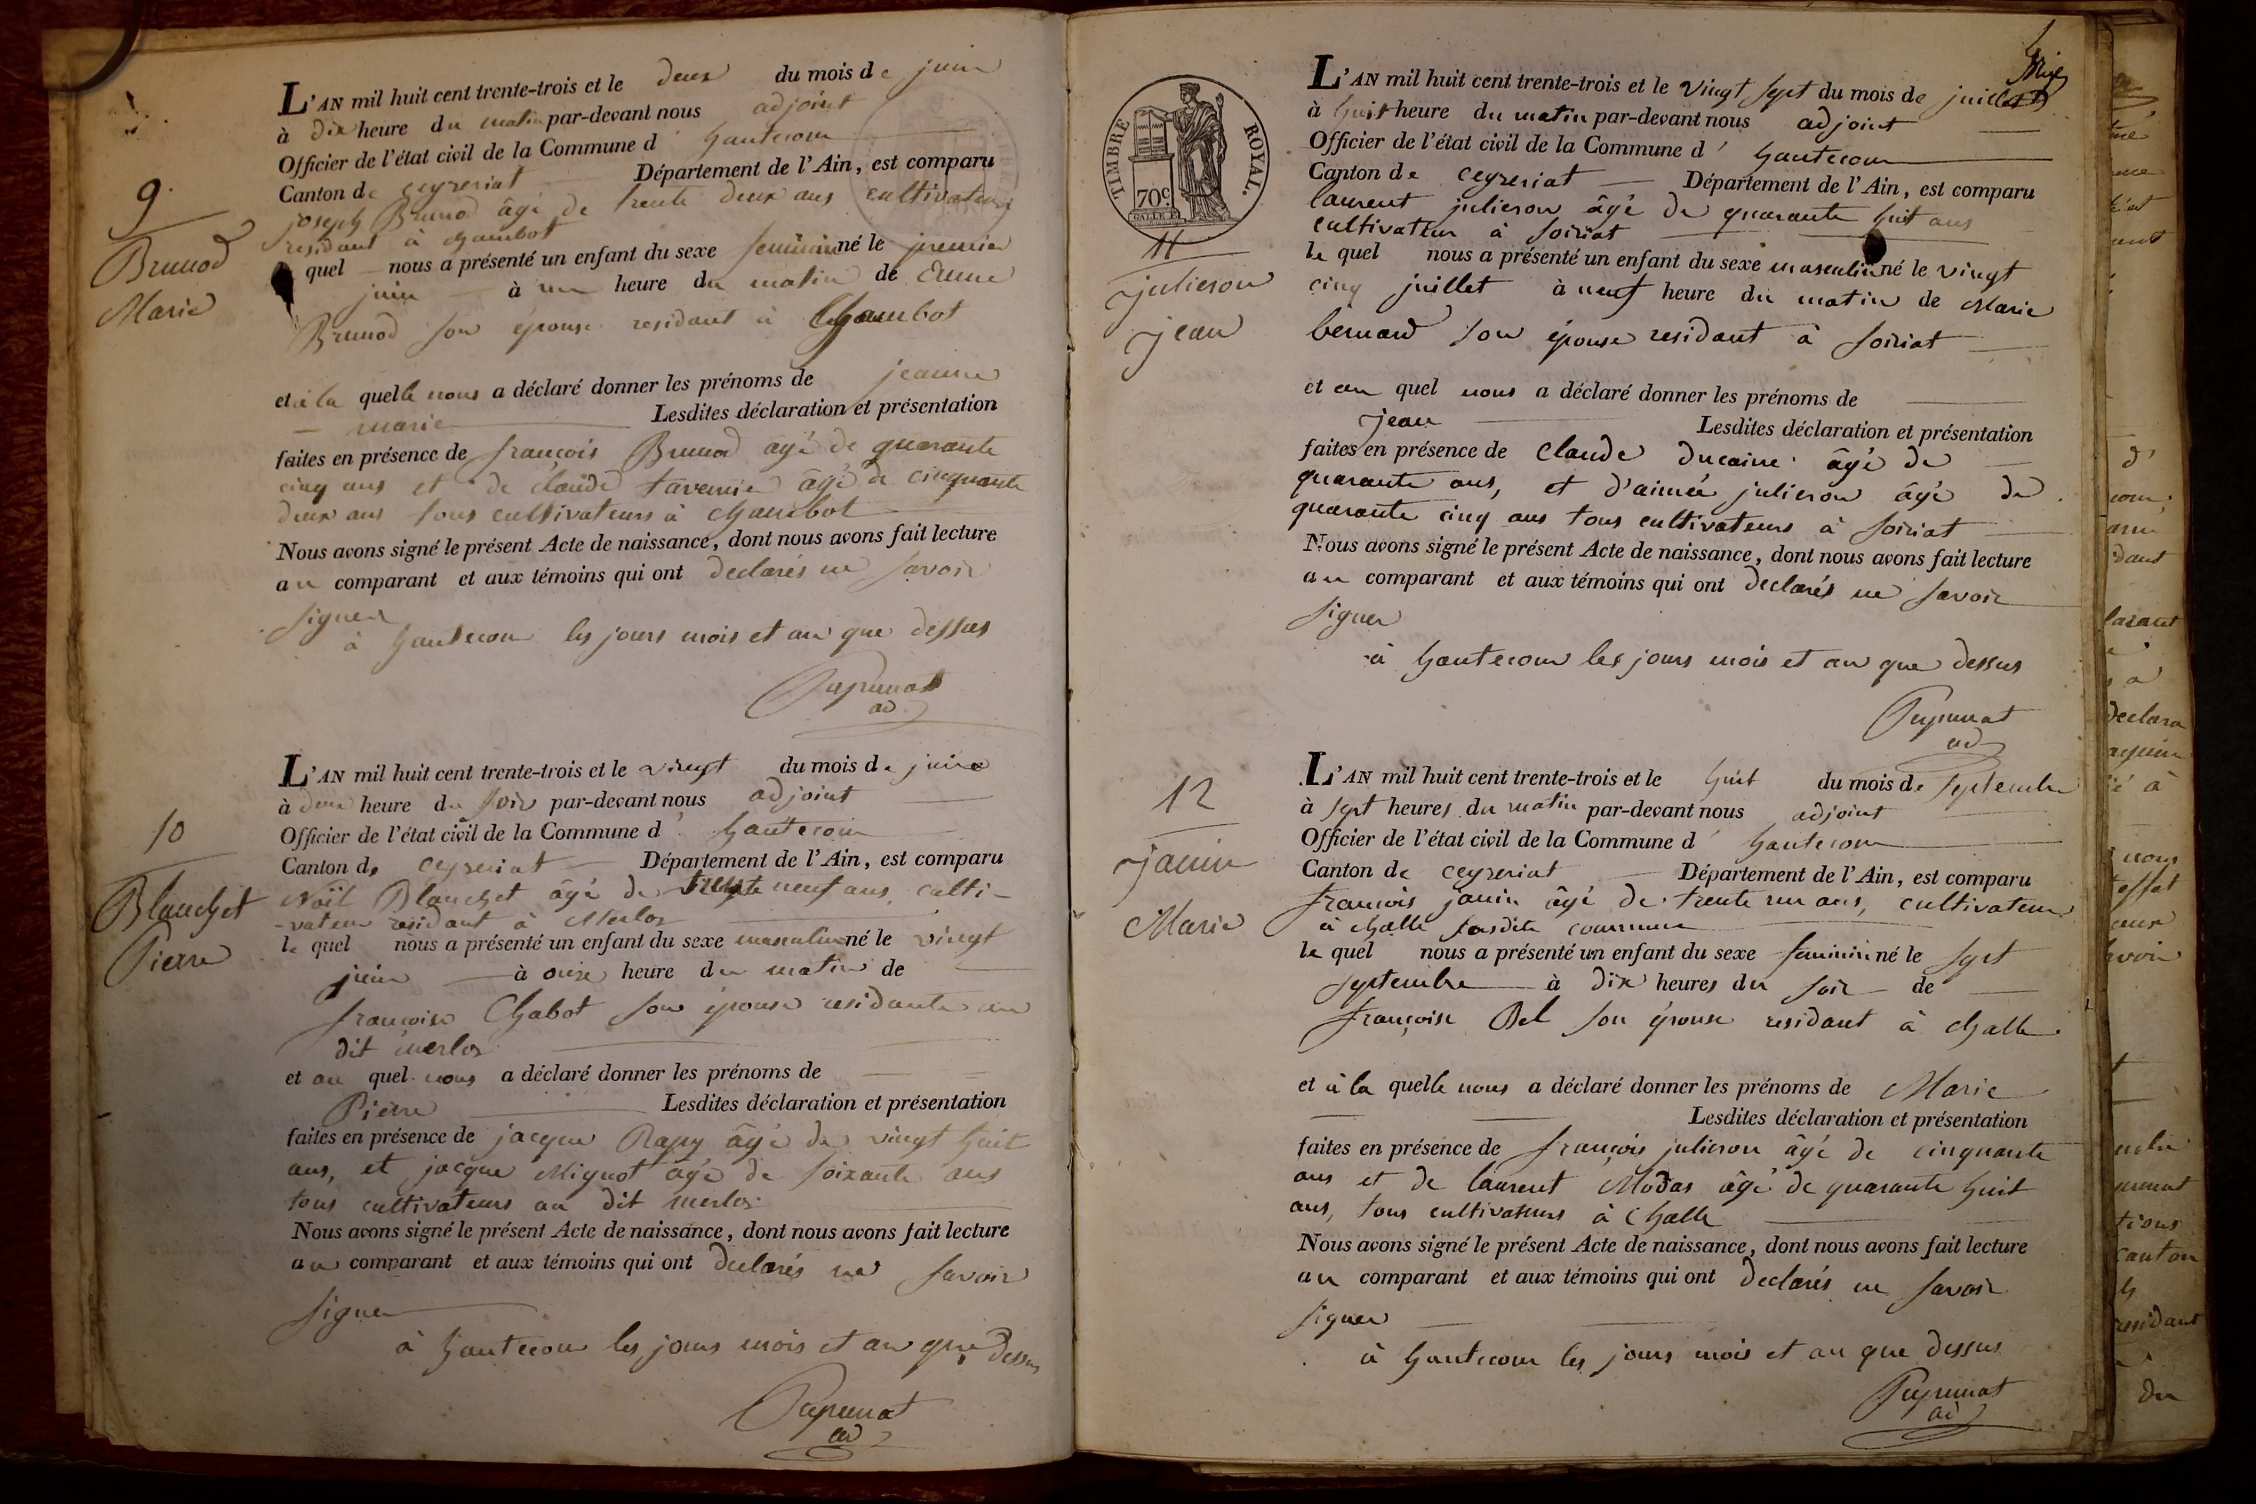 L'AN mil huit cent trente-trois et le deux du mois de juin
à dix heure du matin par-devant nous adjoint
Officier de l'état civil de la Commune d' hautecour
Canton de ceyzeriat Département de l'Ain, est comparu
joseph Brunod âgé de trente deux ans cultivateur
residant à chambot
quel nous a présenté un enfant du sexe feminin né le premier
juin à une heure du matin de
Brunod son épouse residant à Chambot
et à la quelle nous a déclaré donner les prénoms de jeanne
marie Lesdites déclaration et présentation
faites en présence de françois Brunod agé de quarante
cinq ans et de claude tavernier âgé de cinquante
deux ans tous cultivateurs à chambot
Nous avons signé le présent Acte de naissance, dont nous avons fait lecture
au comparant et aux témoins qui ont declarés ne savoir
signer
à hautecour les jours mois et an que dessus
ad
9
Brunod
Marie
L'AN mil huit cent trente-trois et le vingt du mois de juin
à deux heure du soir par-devant nous adjoint
Officier de l'état civil de la Commune d' hautecour
Canton de ceyzeriat Département de l'Ain, est comparu
Noël Blanchet âgé de trente neuf ans, culti-
-vateur residant à Merloz
le quel nous a présenté un enfant du sexe masculin né le vingt
juin à onze heure du matin de
françoise Chabot son épouse residante au
dit merloz
et au quel nous a déclaré donner les prénoms de
Pierre Lesdites déclaration et présentation
faites en présence de jacque Rapy âgé de vingt huit
ans, et jacque Mignot agé de soixante ans
tous cultivateurs au dit merloz
Nous avons signé le présent Acte de naissance, dont nous avons fait lecture
au comparant et aux témoins qui ont declarés ne savoir
signer
à hautecour les jours mois et an que dessus
ad
10
Blanchet
Pierre
TIMBRE ROYAL.
70c
L'AN mil huit cent trente-trois et le vingt sept du mois de juillet
à huit heure du matin par-devant nous adjoint
Officier de l'état civil de la Commune d' hautecour
Canton de ceyzeriat Département de l'Ain, est comparu
laurent julieron âgé de quarante huit ans
cultivateur à soiriat
le quel nous a présenté un enfant du sexe masculin né le vingt
cinq juillet à neuf heure du matin de Marie
bernard son épouse residant à soiriat
et au quel nous a déclaré donner les prénoms de
jean Lesdites déclaration et présentation
faites en présence de claude ducaine âgé de
quarante ans, et d'aimée julieron âgé de
quarante cinq ans tous cultivateurs à soiriat
Nous avons signé le présent Acte de naissance, dont nous avons fait lecture
au comparant et aux témoins qui ont declarés ne savoir
signer
à hautecour les jours mois et an que dessus
ad
11
julieron
jean
L'AN mil huit cent trente-trois et le huit du mois de septembre
à sept heures du matin par-devant nous adjoint
Officier de l'état civil de la Commune d' hautecour
Canton de ceyzeriat Département de l'Ain, est comparu
francois janin âgé de trente un ans, cultivateur
à challe susdite commune
le quel nous a présenté un enfant du sexe feminin né le sept
septembre à dix heures du soir de
françoise Bel son épouse residant à challe
et à la quelle nous a déclaré donner les prénoms de Marie
Lesdites déclaration et présentation
faites en présence de françois julieron âgé de cinquante
ans et de laurent Modas âgé de quarante huit
ans, tous cultivateurs à challe
Nous avons signé le présent Acte de naissance, dont nous avons fait lecture
au comparant et aux témoins qui ont declarés ne savoir
signer
à hautecour les jours mois et an que dessus
ad
12
janin
Marie